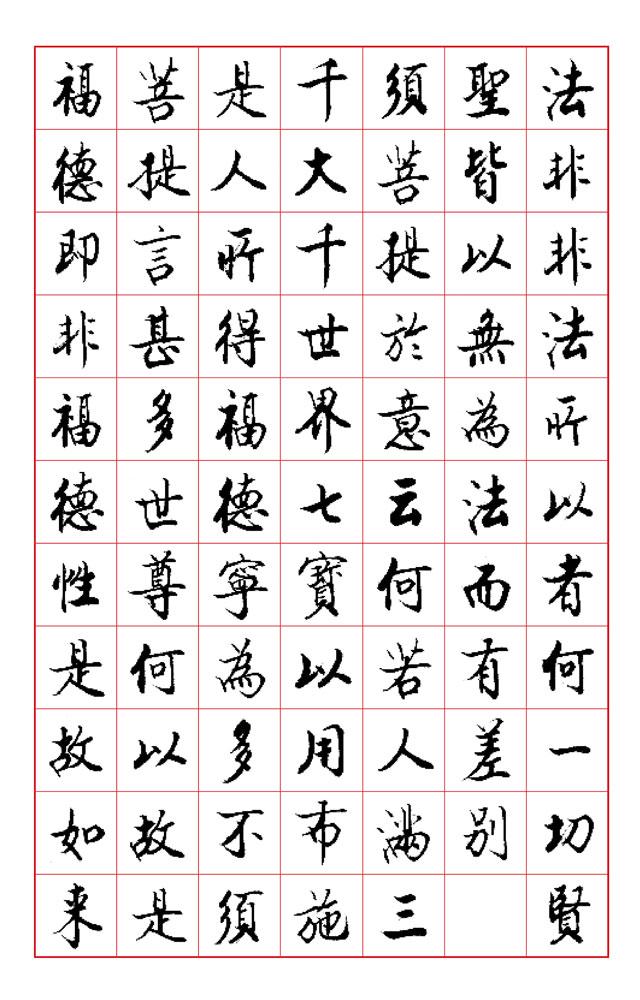 法非非法所以者何一切賢
聖皆以無為法而有差別
須菩提於意云何若人滿三
千大千世界七寶以用布施
是人所得福德寧為多不須
菩提言甚多世尊何以故是
福德即非福德性是故如来